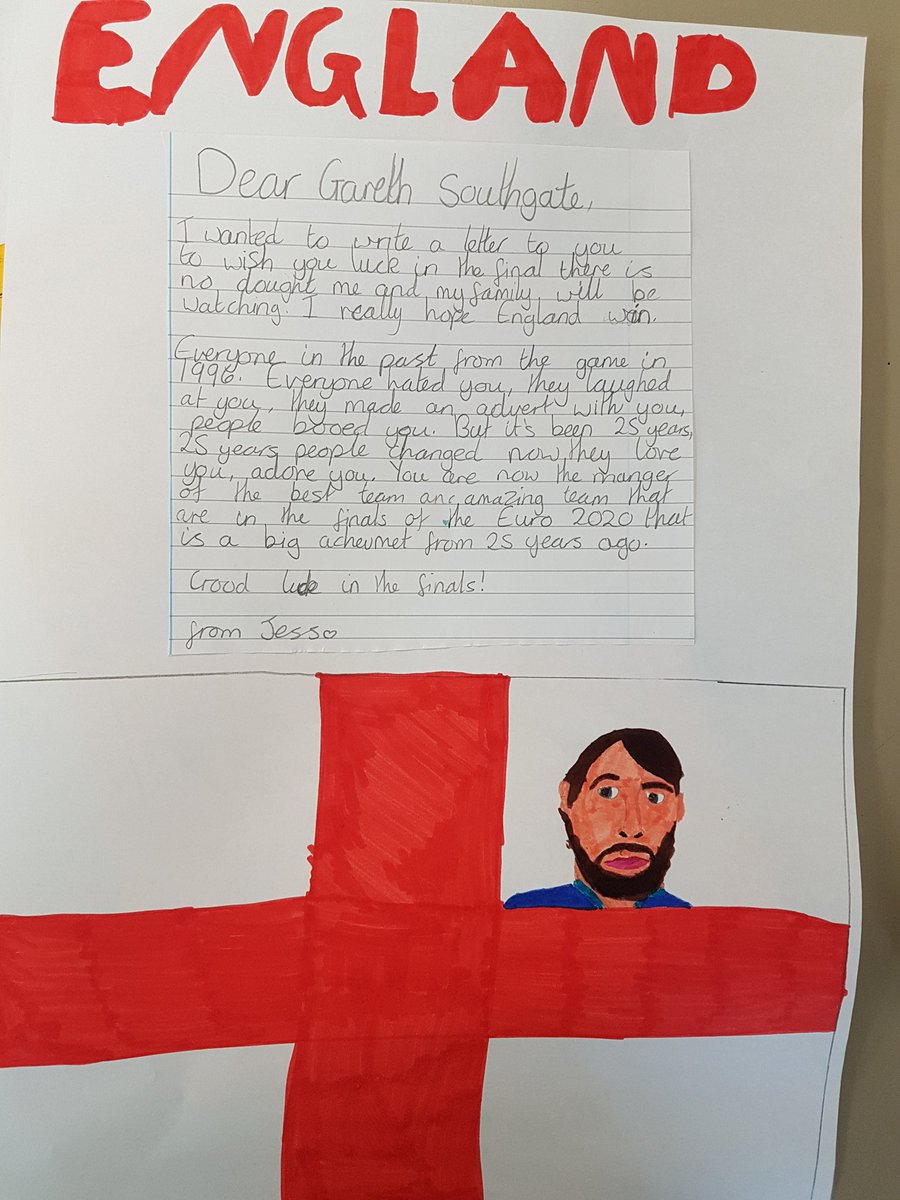 ENGLAND
Dear Gareth Southgate,
I wanted to write a letter to you
to wish you luck in the final there is
no dought me and my family will be
watching! I really hope England win.
Everyone in the past from the game in
1996. Everyone hated you, they laughed
at you, they made an advert with you,
people booed you. But it's been 25 years,
25 years people changed now, they love
you, adore you. You are now the manger
of the best team an amazing team that
are in the finals of the Euro 2020 that
is a big acheumet from 25 years ago.
Good luck in the finals!
from Jess♡